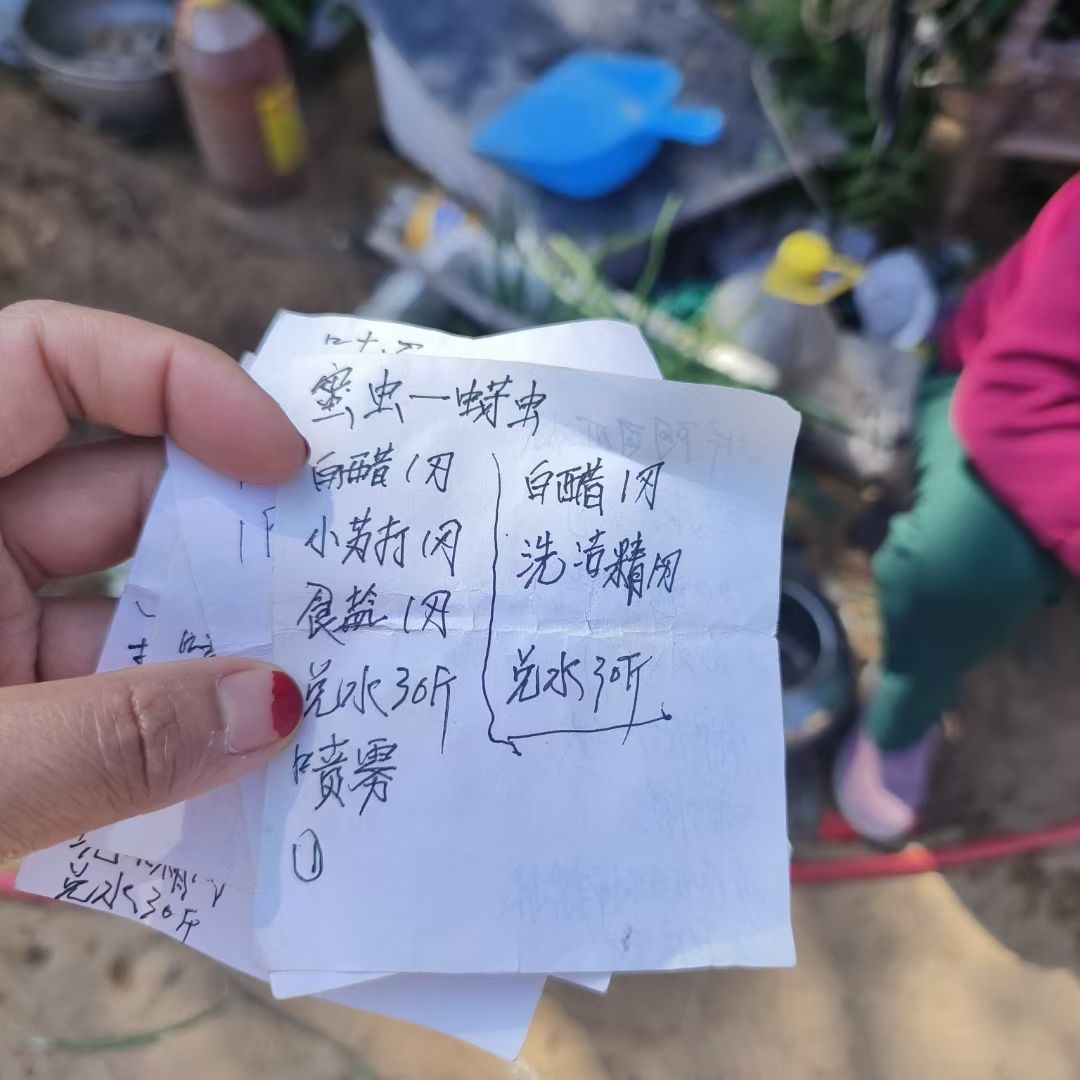 蜜虫一蚜虫
白醋1两
小苏打1两
食盐1两
兑水30斤
喷雾
①
白醋1两
洗洁精1两
兑水30斤
兑水30斤